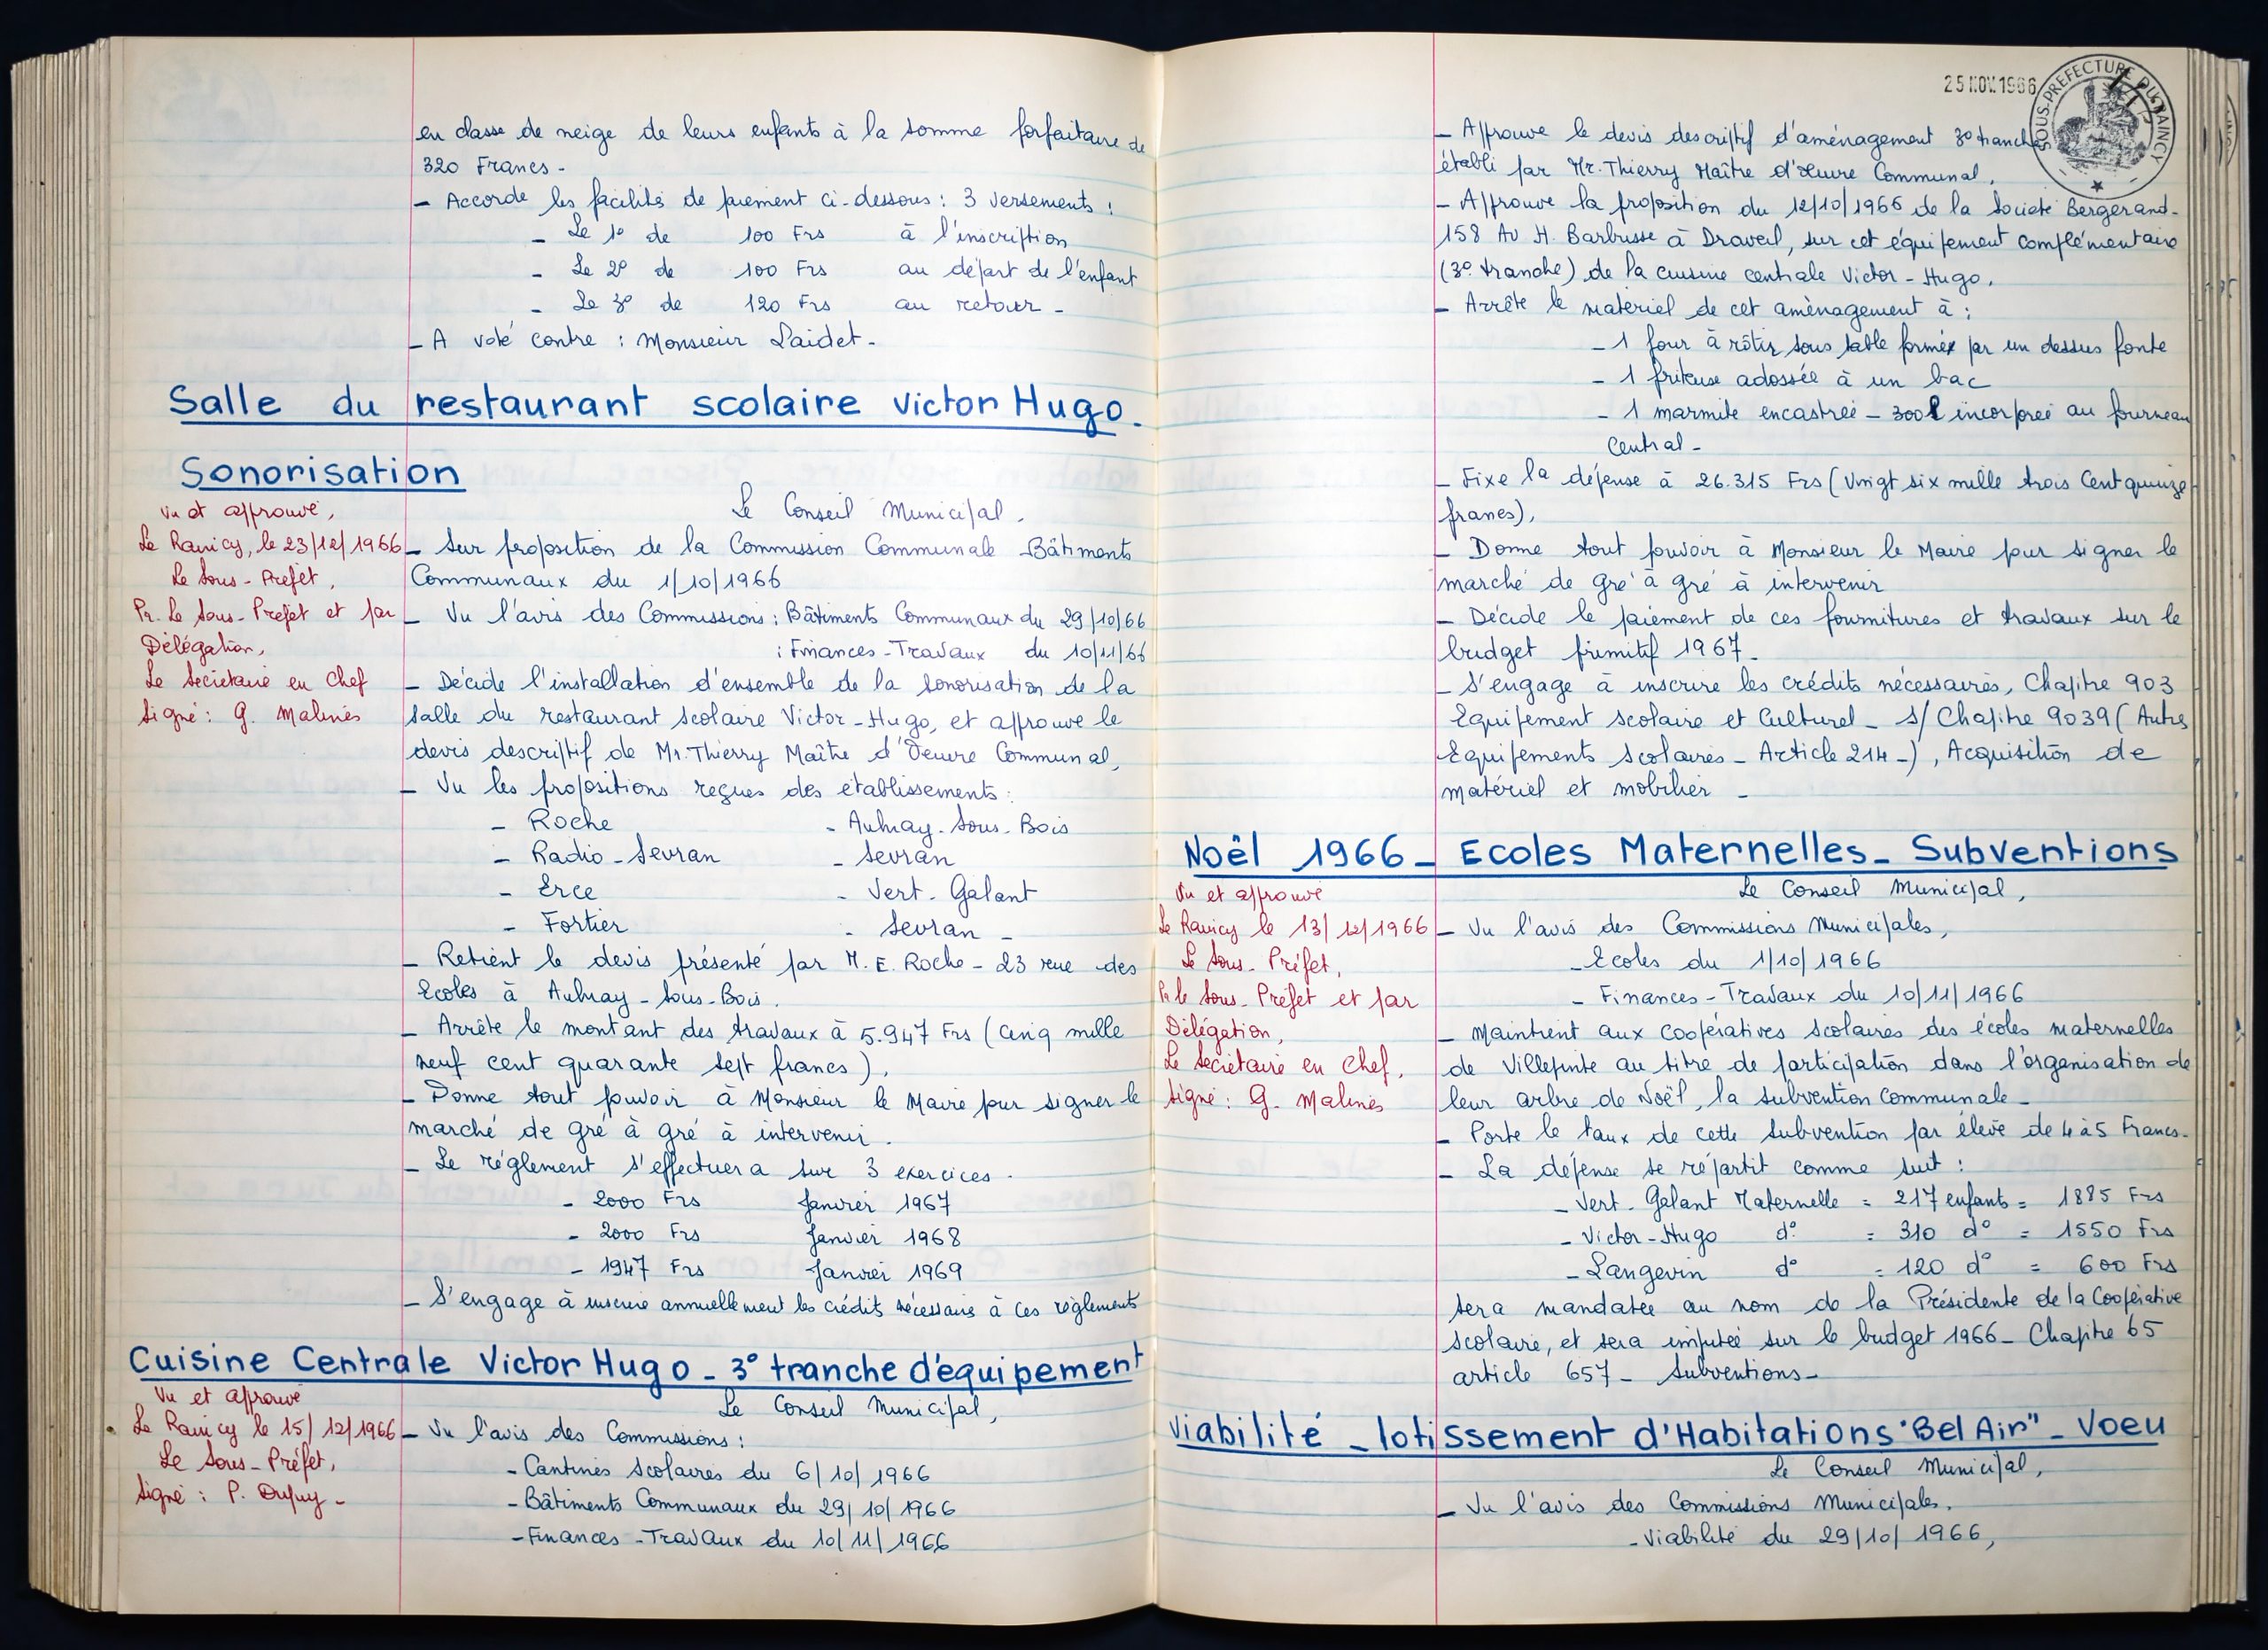 en classe de neige de leurs enfants à la somme forfaitaire de
320 Francs -
- Accorde les facilités de paiement ci-dessous : 3 versements :
- Le 1° de 100 Frs à l'inscription
- Le 2° de 100 Frs au départ de l'enfant
- Le 3° de 120 Frs au retour -
- A voté contre : Monsieur Laidet -
Salle du restaurant scolaire Victor Hugo -
Sonorisation
Vu et approuvé,
Le Raincy, le 23/12/1966
Le Sous-Préfet,
Pr. Le Sous-Préfet et par
Délégation,
Le Secrétaire en Chef
Signé : G. Malinès
Le Conseil Municipal,
- Sur proposition de la Commission Communale Bâtiments
Communaux du 1/10/1966
- Vu l'avis des Commissions : Bâtiments Communaux du 29/10/66
: Finances-Travaux du 10/11/66
- Décide l'installation d'ensemble de la sonorisation de la
salle du restaurant scolaire Victor-Hugo, et approuve le
devis descriptif de Mr. Thierry Maître d'Oeuvre Communal,
- Vu les propositions reçues des établissements :
- Roche - Aulnay-Sous-Bois
- Radio-Sevran - Sevran
- Erce - Vert-Galant
- Fortier - Sevran -
- Retient le devis présenté par M. E. Roche - 23 rue des
Ecoles à Aulnay-Sous-Bois.
- Arrête le montant des travaux à 5.947 Frs (Cinq mille
neuf cent quarante sept francs),
- Donne tout pouvoir à Monsieur le Maire pour signer le
marché de gré à gré à intervenir.
- Le réglement s'effectuera sur 3 exercices.
- 2000 Frs Janvier 1967
- 2000 Frs Janvier 1968
- 1947 Frs Janvier 1969
- S'engage à inscrire annuellement les crédits nécessaire à ces règlements
Cuisine Centrale Victor Hugo - 3° tranche d'équipement
Vu et approuvé
Le Raincy le 15/12/1966
Le Sous-Préfet,
Signé : P. Dupuy -
Le Conseil Municipal,
- Vu l'avis des Commissions :
- Cantines scolaires du 6/10/1966
- Bâtiments Communaux du 29/10/1966
- Finances-Travaux du 10/11/1966
25 NOV. 1966
SOUS-PREFECTURE DU RAINCY
- Approuve le devis descriptif d'aménagement 3° tranche
établi par Mr. Thierry Maître d'Oeuvre Communal,
- Approuve la proposition du 12/10/1966 de la Société Bergerand-
158 Av H. Barbusse à Draveil, sur cet équipement complémentaire
(3° tranche) de la cuisine centrale Victor-Hugo,
- Arrête le matériel de cet aménagement à :
- 1 four à rôtir sous table formée par un dessus fonte
- 1 friteuse adossée à un bac
- 1 marmite encastrée - 300 l incorporée au fourneau
Central -
- Fixe la dépense à 26.315 Frs (Vingt six mille trois Cent quinze
francs),
- Donne tout pouvoir à Monsieur le Maire pour signer le
marché de gré à gré à intervenir
- Décide le paiement de ces fournitures et travaux sur le
budget primitif 1967 -
- S'engage à inscrire les crédits nécessaires, Chapitre 903
Equipement scolaire et Culturel - s/Chapitre 9039 (Autres
Equipements scolaires - Article 214 -), Acquisition de
matériel et mobilier -
Noël 1966 - Ecoles Maternelles - Subventions
Vu et approuvé
Le Raincy le 13/12/1966
Le Sous-Préfet,
Pr le Sous-Préfet et par
Délégation,
Le Secrétaire en Chef,
Signé : G. Malinès
Le Conseil Municipal,
- Vu l'avis des Commissions Municipales,
- Ecoles du 1/10/1966
- Finances-Travaux du 10/11/1966
- Maintient aux coopératives scolaires des écoles maternelles
de Villepinte au titre de participation dans l'organisation de
leur arbre de Noël, la subvention Communale -
- Porte le taux de cette subvention par élève de 4 à 5 Francs -
- La dépense se répartit comme suit :
- Vert-Galant Maternelle = 217 enfants = 1885 Frs
- Victor-Hugo d° = 310 d° = 1550 Frs
- Langevin d° = 120 d° = 600 Frs
sera mandatée au nom de la Présidente de la Coopérative
scolaire, et sera imputée sur le budget 1966 - Chapitre 65
article 657 - Subventions -
Viabilité - lotissement d'Habitations "Bel Air" - Voeu
Le Conseil Municipal,
- Vu l'avis des Commissions Municipales,
- Viabilité du 29/10/1966,